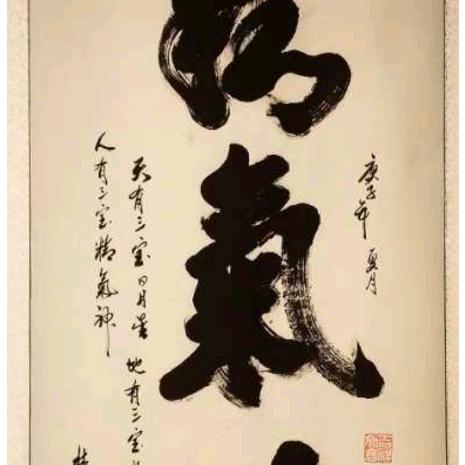 庚子年 夏月
氣
天有三宝日月星 地有三宝
人有三宝精氣神